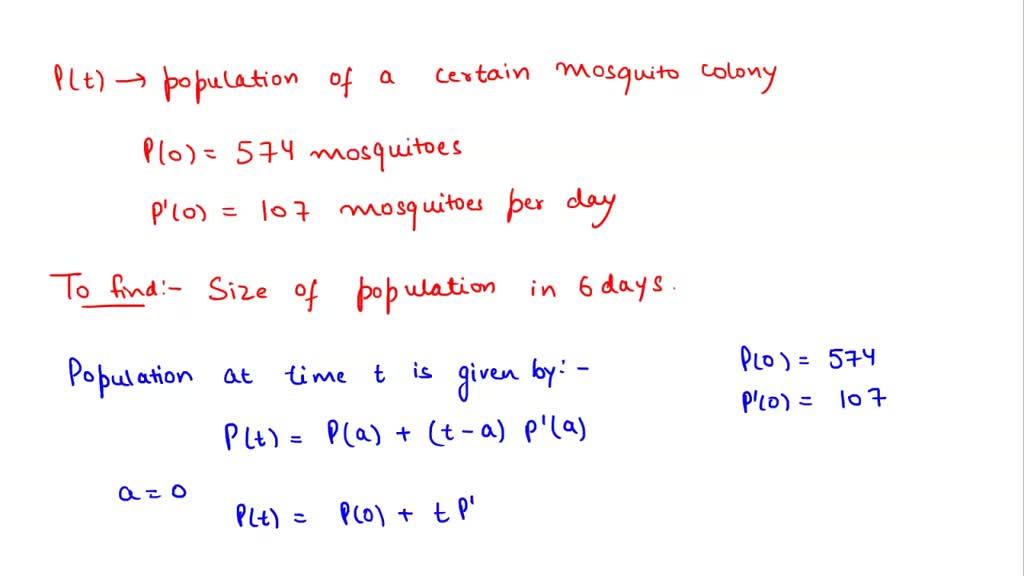 P(t) → population of a certain mosquito colony
P(0) = 574 mosquitoes
P'(0) = 107 mosquitoes per day
To find:- Size of population in 6 days.
Population at time t is given by:-
P(t) = P(a) + (t-a) P'(a)
a = 0
P(t) = P(0) + t P'
P(0) = 574
P'(0) = 107